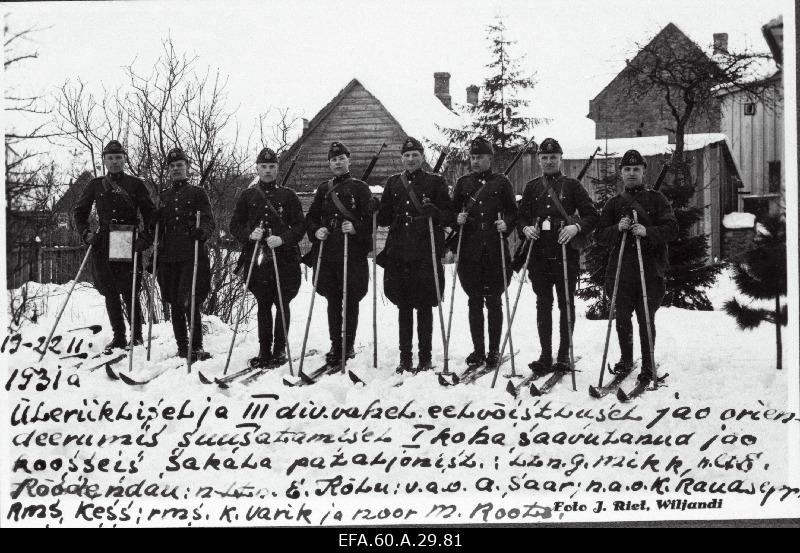 19-22 II.
1931a
Üleriiklisel ja III div. vahel. eelvõistlusel jao orien-
deerumis suusatamisel I koha saavutanud jao
koosseis Sakala pataljonist.: Ltn. g. Mikk, n.ltn.
Röödendäu: n-ltn. E. Rõlu: v.a.o. a. Saar: n.a.o. K. Raud
rms. Kess: rms. K. Varik ja noor m. Roots.
Foto J. Riet, Wiljandi
EFA.60.A.29.81